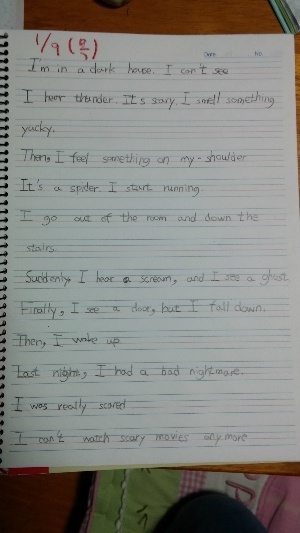 1/9 (日)
Date No
I'm in a dark house. I can't see
I hear thunder. It's scary. I smell something
yucky.
Then, I feel something on my shoulder
It's a spider. I start running
I go out of the room and down the
stairs
Suddenly, I hear a scream, and I see a ghost
Finally, I see a door, but I fall down.
Then, I wake up
Last night, I had a bad nightmare.
I was really scared
I can't watch scary movies any more